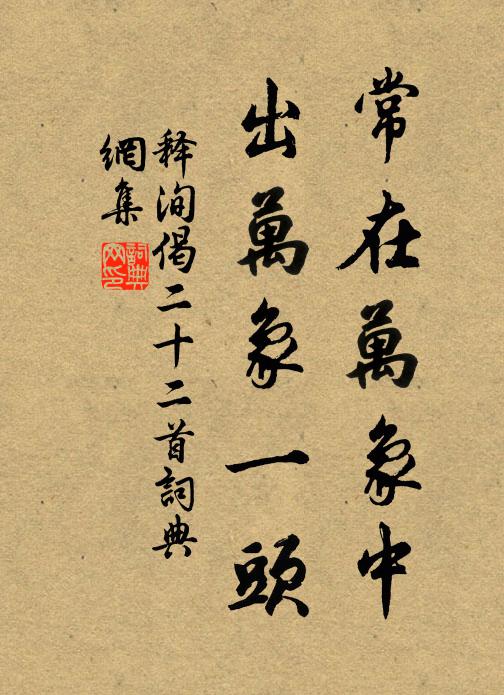 常在萬象中
出萬象一頭
释洵偈二十二首詞典
網集
詞典
网印